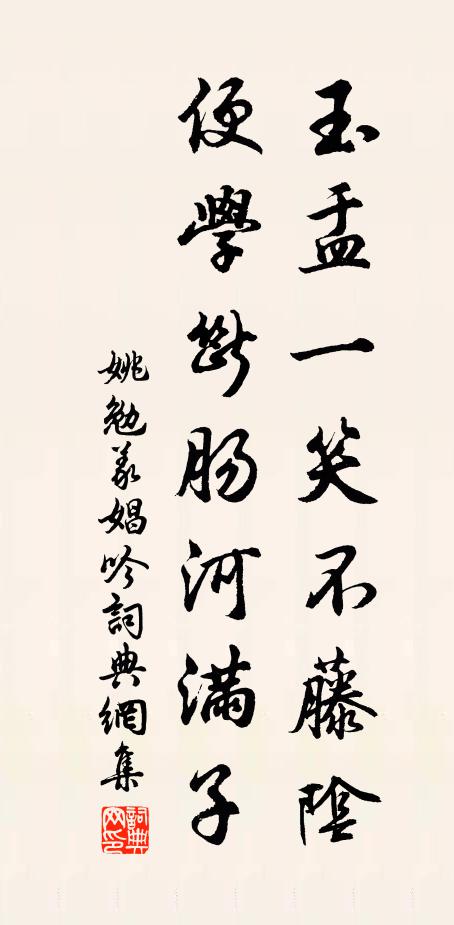 玉盂一笑不藤陰
便學斷腸河滿子
姚勉義娼吟詞典網集
詞典網印